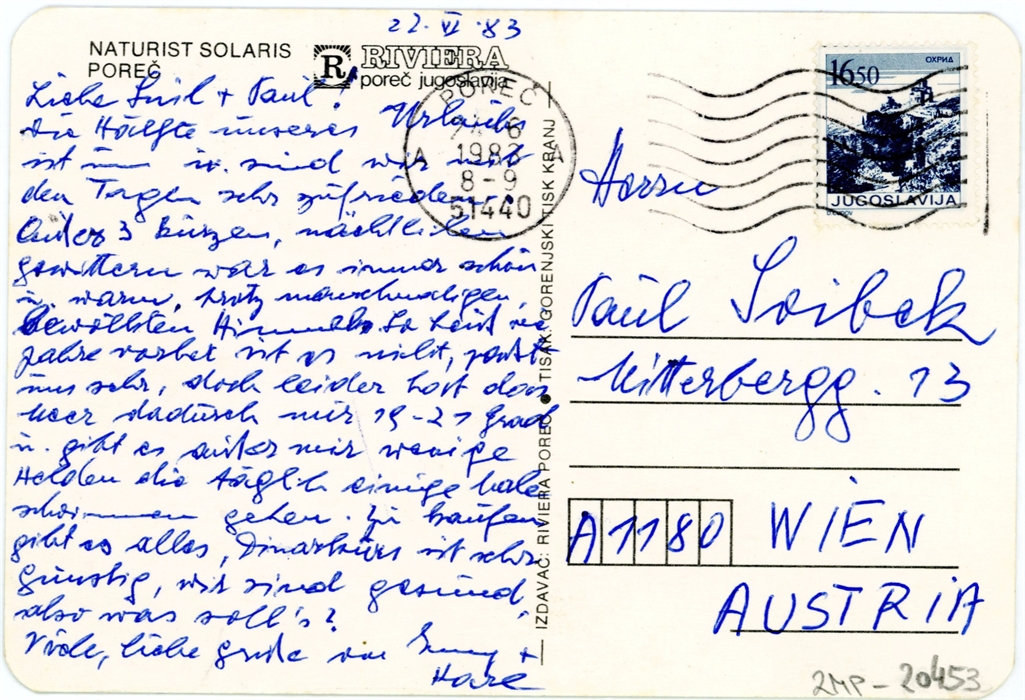 22. VI. 83
NATURIST SOLARIS
POREČ
R RIVIERA
poreč jugoslavija
Liebe + Paul!
Die Hälfte unseres Urlaubs
ist um u. sind wir mit
den Tagen sehr zufrieden.
Außer 3 kurzen, nächtlichen
gewittern war es immer schön
u. warm, trotz manchmaligen,
bewölkten Himmels. So heiß wie
Jahre vorbei ist es nicht, paßt
uns sehr, doch leider hat das
Meer dadurch nur 19-21 Grad
u. gibt es außer mir wenige
Helden die täglich einige Male
schwimmen gehen. Zu kaufen
gibt es alles, Dinarkurs ist sehr
günstig, wir sind gesund,
also was soll's?
Viele, liebe grüße von +
POREČ
1983
8-9
A A
51440
IZDAVAČ: RIVIERA POREČ ● TISAK: GORENJSKI TISK KRANJ
ОХРИД
1650
JUGOSLAVIJA
Herrn
Paul Soibek
Mitterbergg. 13
A 1180 WIEN
AUSTRIA
2MP-20453